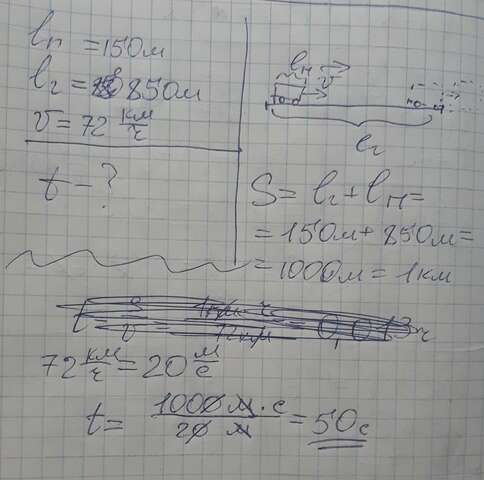 lп = 150м
l₂ = 850м
v = 72 км/ч
t - ?
lп
v
l₂
S = l₂ + lп =
= 150м + 850м =
= 1000м = 1км
t = S/v = 1км·ч/72км = 0,013ч
72 км/ч = 20 м/с
t = 1000 м·с/20 м = 50с